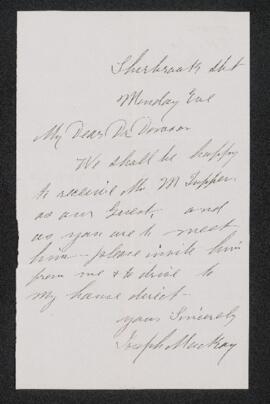 Sherbrooke St
Monday Eve
My Dear Dr Dawson
We shall be happy
to receive Mr M Tupper
as our Guest, and
as you are to meet
him - please invite him
from me & to drive to
my house direct -
yours Sincerely
Joseph Mackay